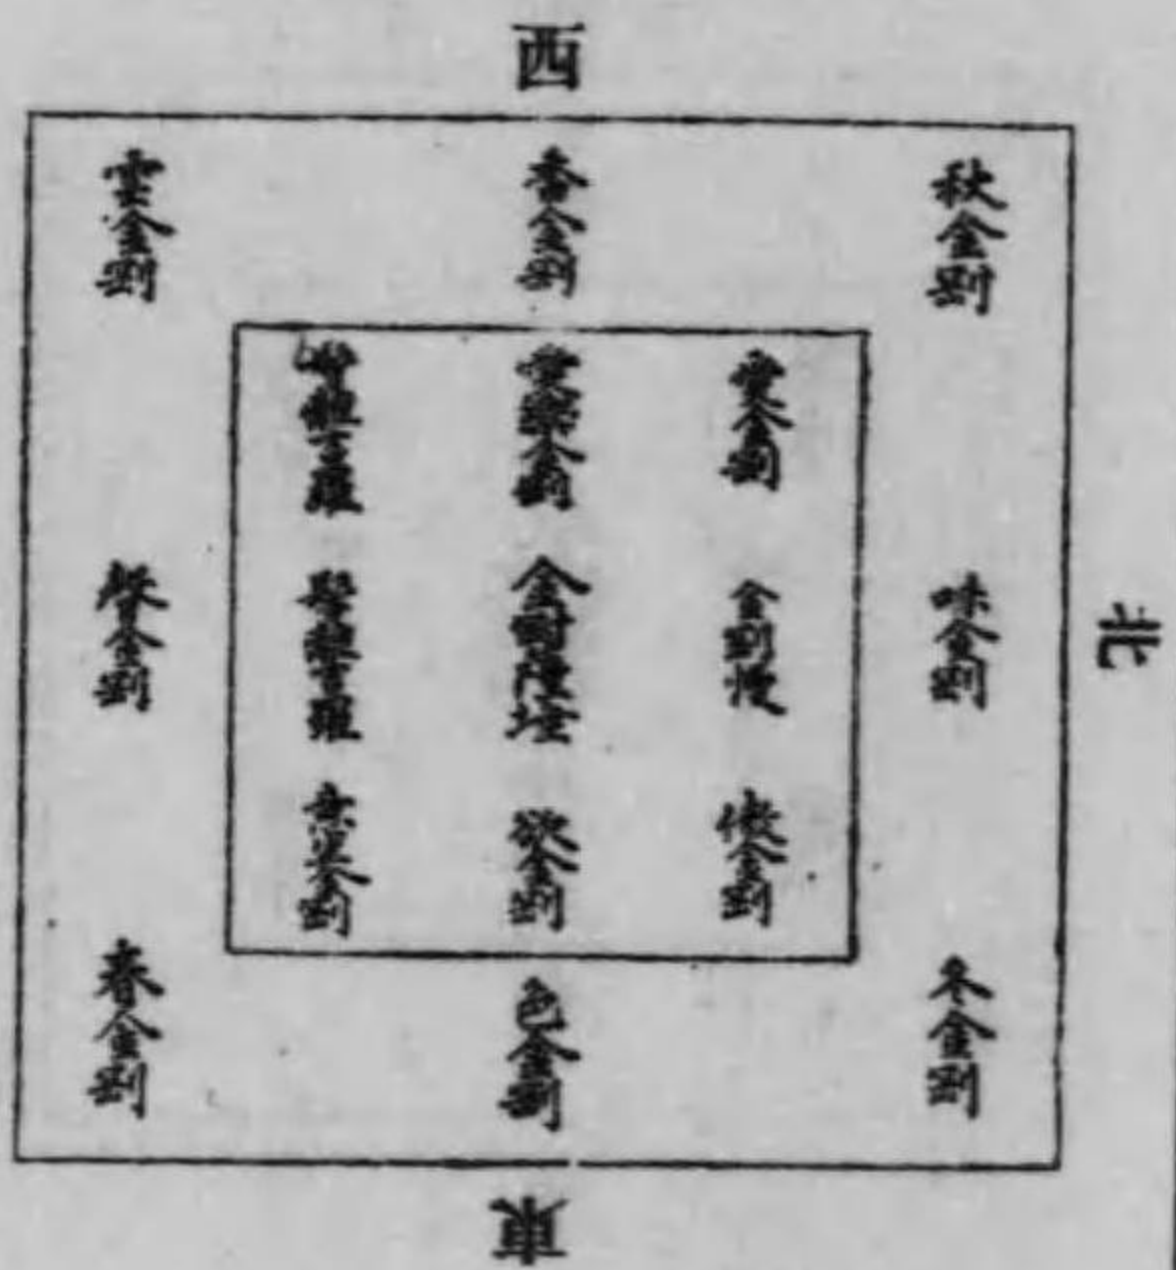 西
秋金剛
香金剛
雲金剛
愛金剛
愛樂金剛
北
味金剛
金剛慢
金剛薩埵
聲金剛
傲金剛
欲金剛
意生金剛
冬金剛
色金剛
春金剛
東